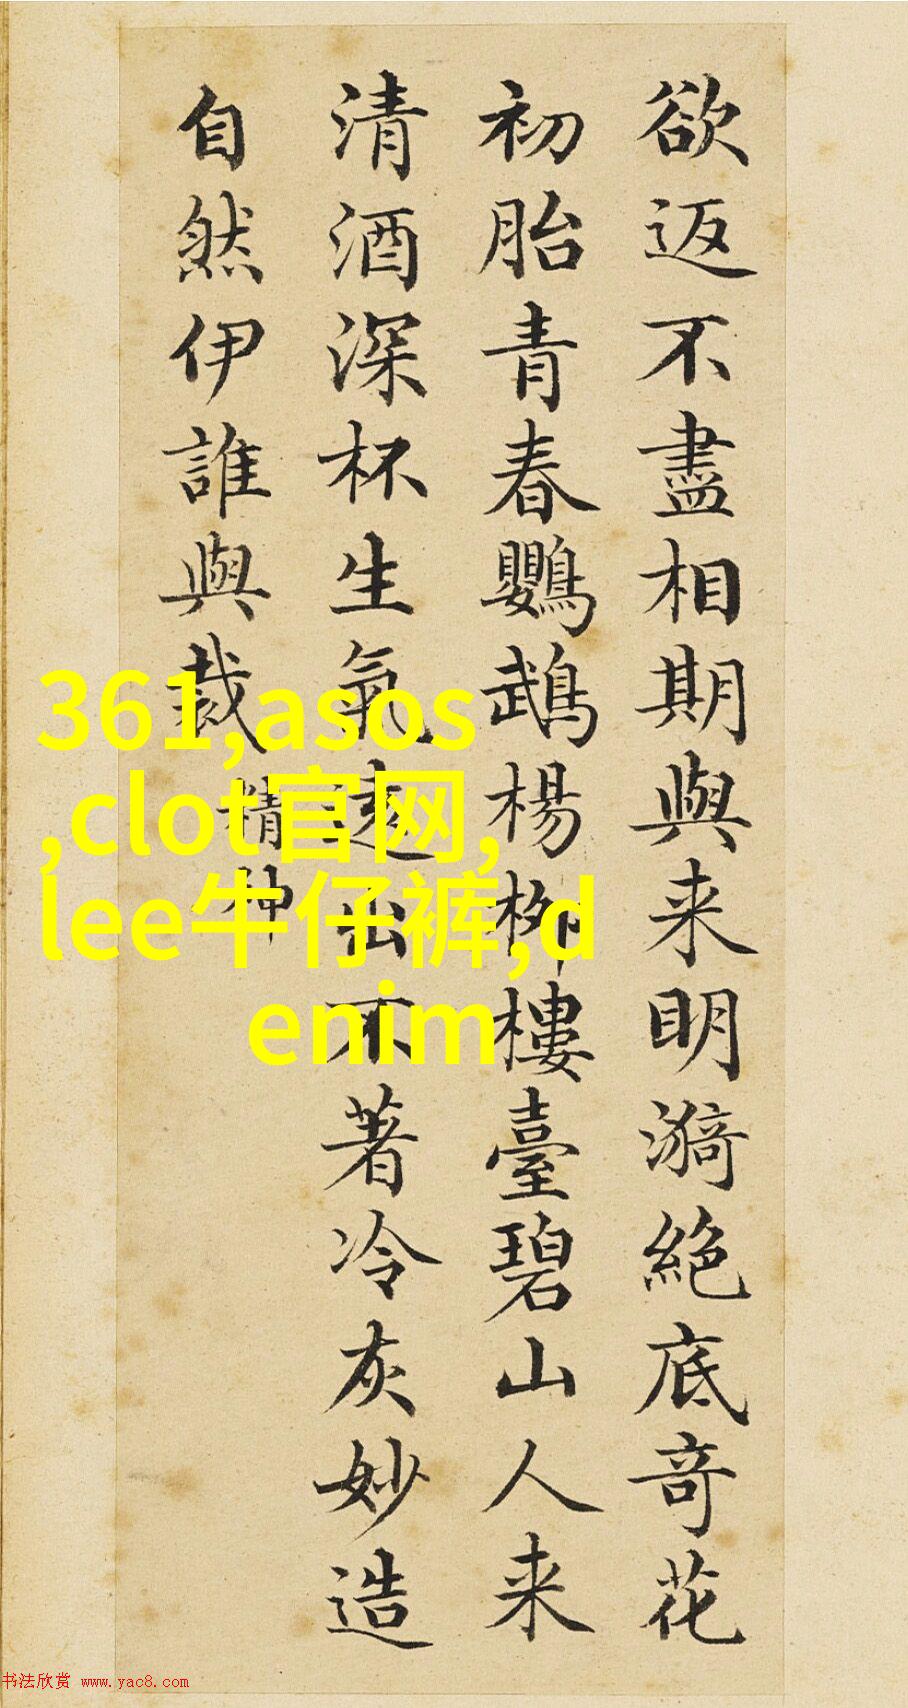 欲返不盡相期與来明漪絕底奇花
初胎青春鸚鵡楊柳樓臺碧山人来
清酒深杯生氣遠出不著冷灰妙造
自然伊誰與裁
精神
361,asos
,clot官网,
lee牛仔裤,d
enim
书法欣赏 www.yac8.com